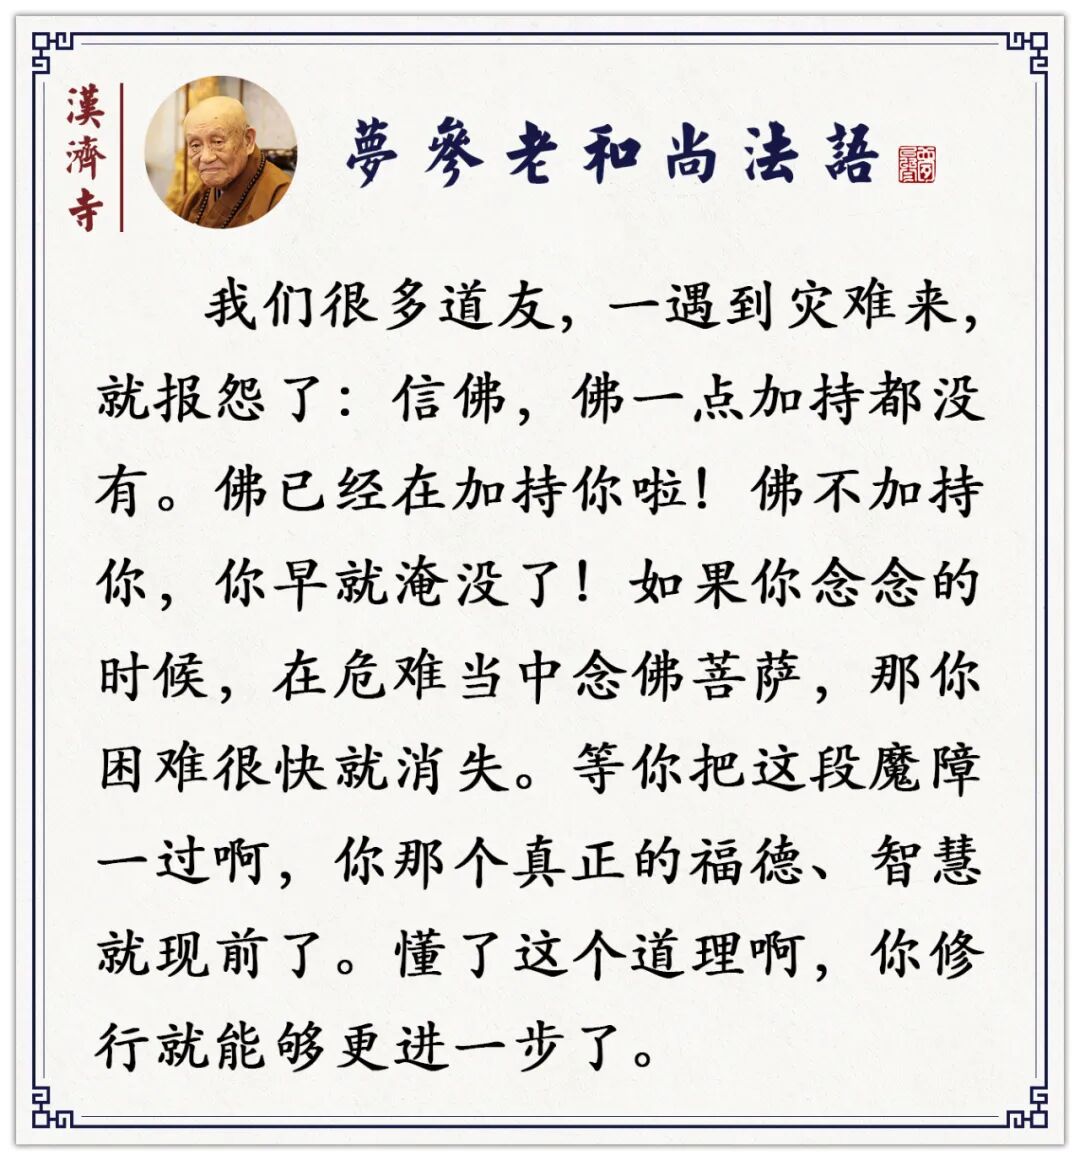 漢濟寺
夢參老和尚法語
我们很多道友，一遇到灾难来，
就报怨了：信佛，佛一点加持都没
有。佛已经在加持你啦！佛不加持
你，你早就淹没了！如果你念念的
时候，在危难当中念佛菩萨，那你
困难很快就消失。等你把这段魔障
一过啊，你那个真正的福德、智慧
就现前了。懂了这个道理啊，你修
行就能够更进一步了。